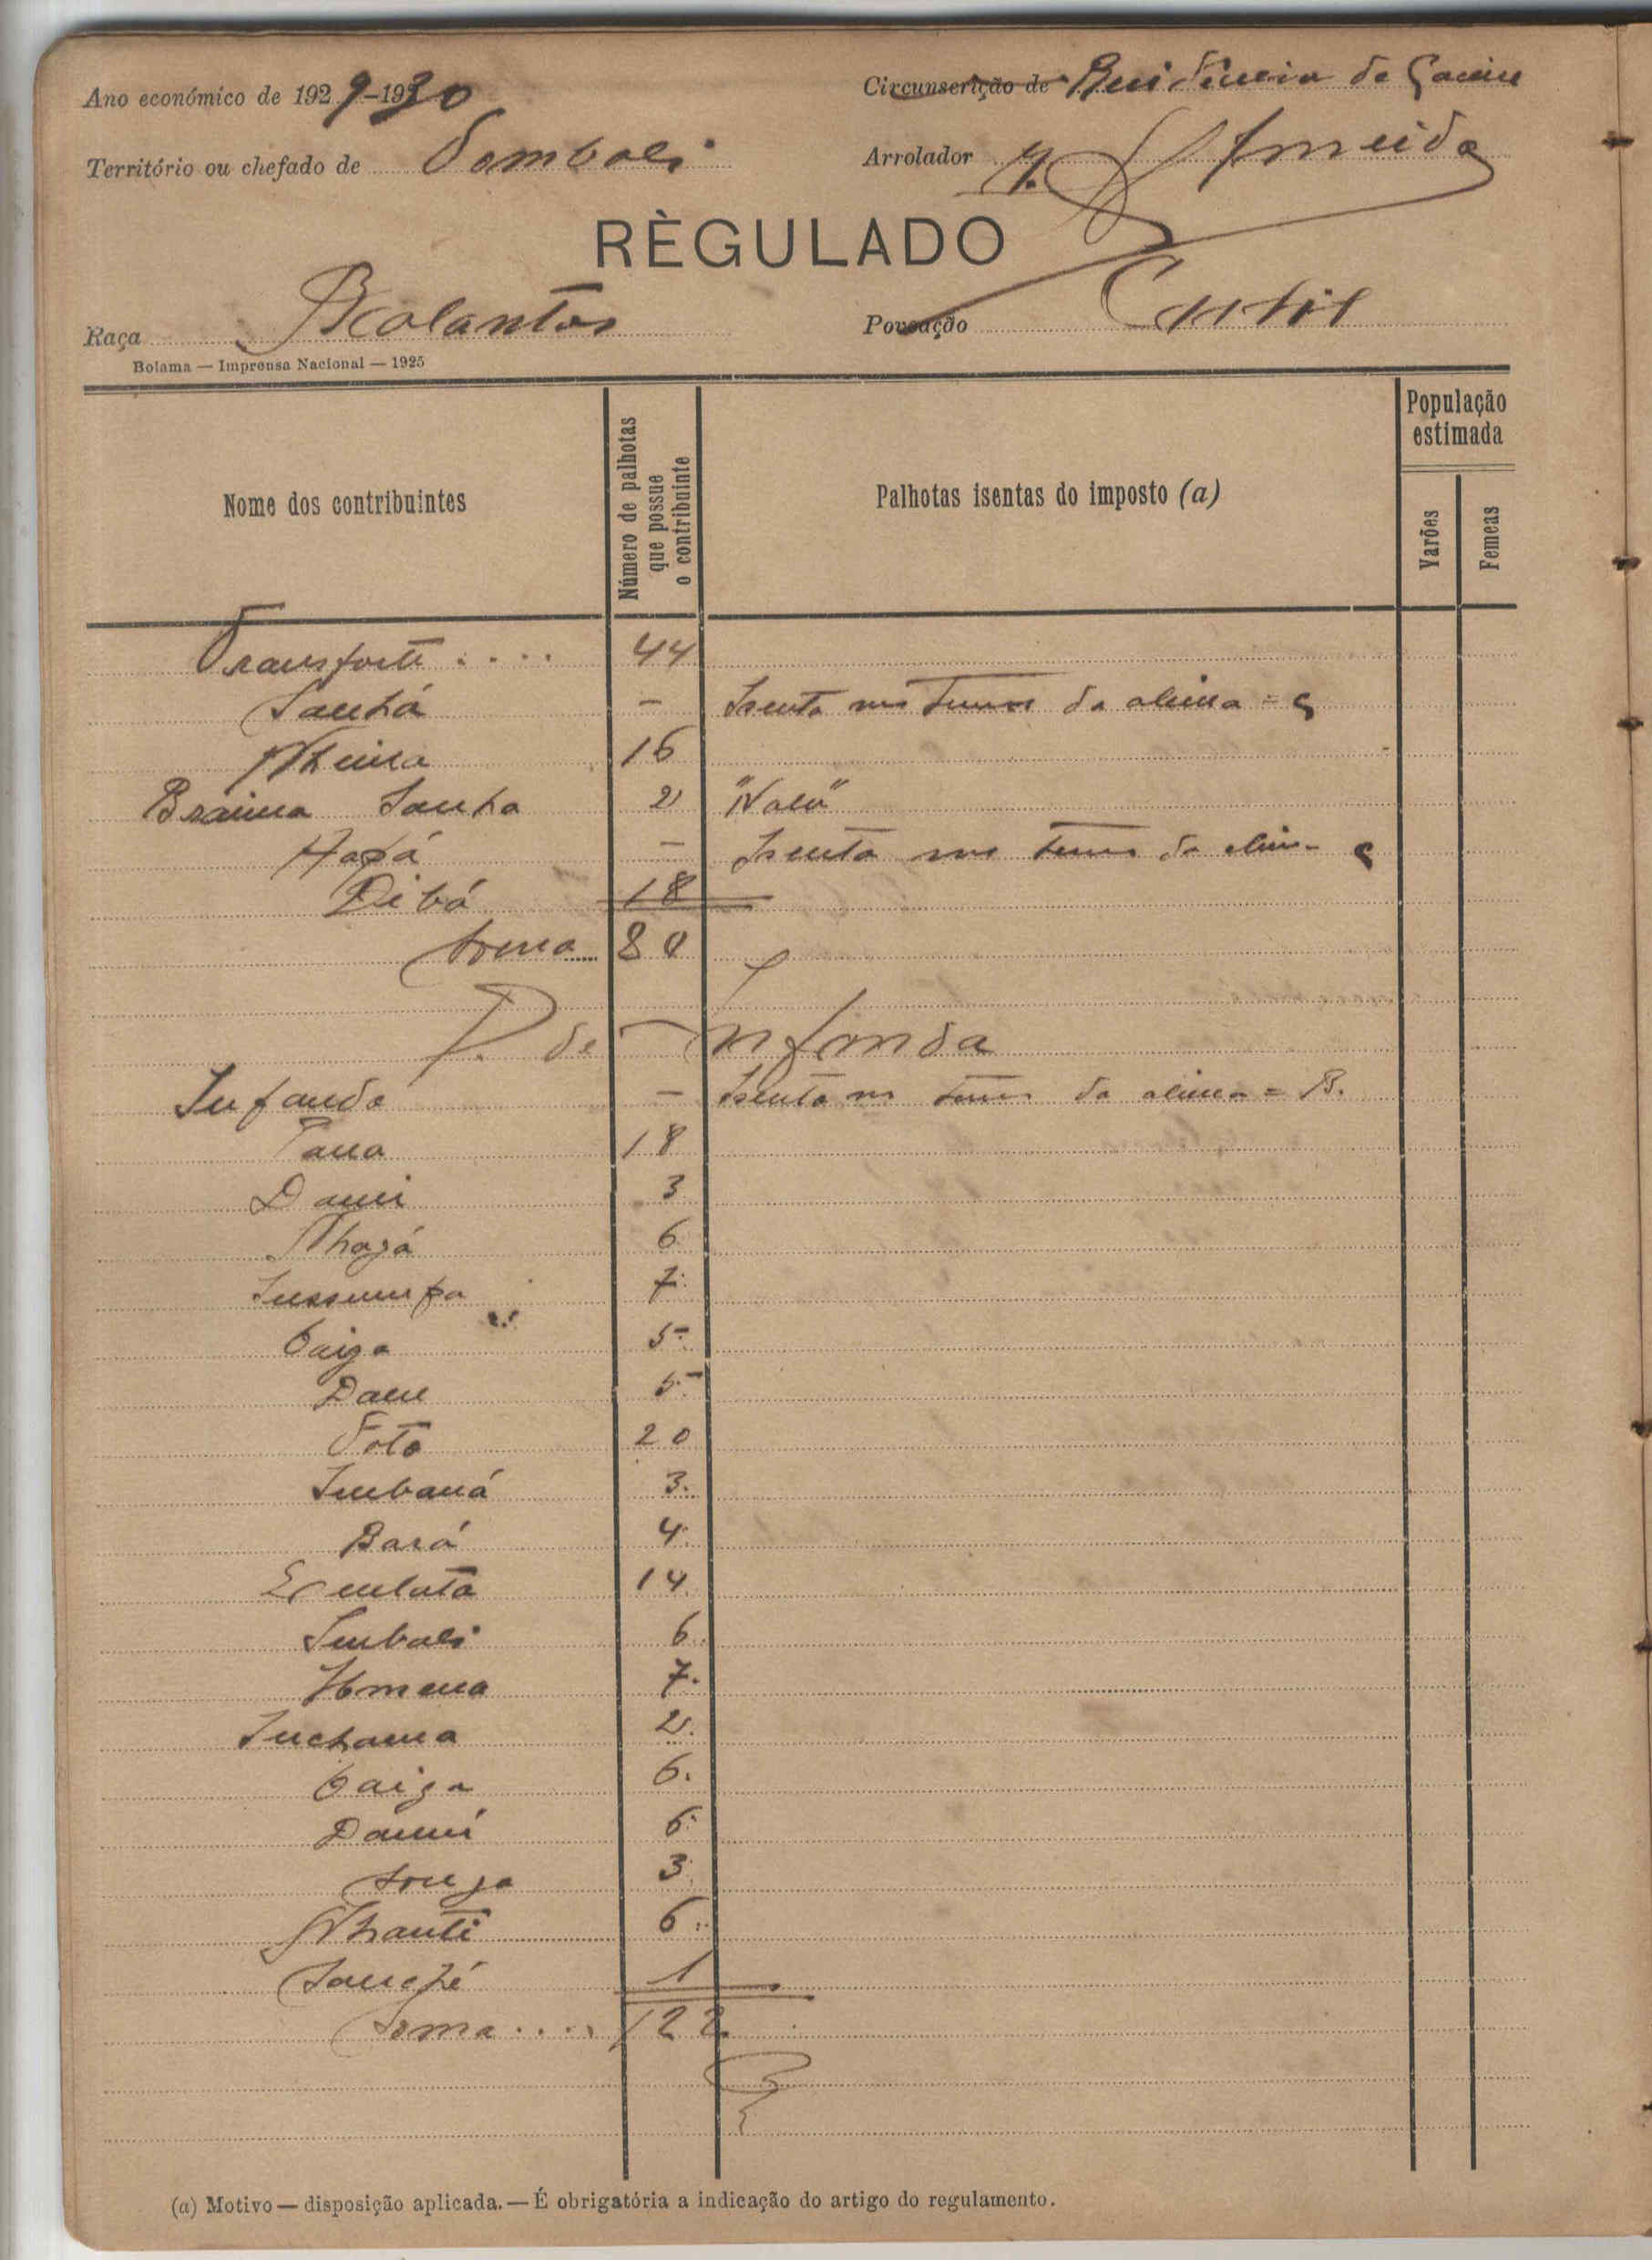 Ano económico de 1929-1930
Circunscrição de Residencia de Cacine
Território ou chefado de Tombali
Arrolador Almeida
RÈGULADO
Raça Balantas
Povoação Cantil
Bolama — Imprensa Nacional — 1925
Nome dos contribuintes
Número de palhotas que possue o contribuinte
Palhotas isentas do imposto (a)
População estimada
Varões
Femeas
Transporte .... 44
Sanhá — Isento nos termos da alinea = c
Nhina 16
Braima Sanha 2 "Nalú"
— Isento nos termos da alinea c
Bibó 18
Soma 80
P. de Infonda
Infanda — Isento nos termos da alinea = B.
Tana 18
Dami 3
Nhagá 6
Inssumpa 7
Caiga 5
Dam 5
Toto 20
Imbaná 3
Bará 4
14
Imbali 6
7
Inchama 2
Caiga 6
Damni 6
Songa 3
Nhanti 6
1
Soma .... 122
(a) Motivo — disposição aplicada. — É obrigatória a indicação do artigo do regulamento.